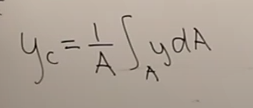 y_c = 1/A ∫_A y dA